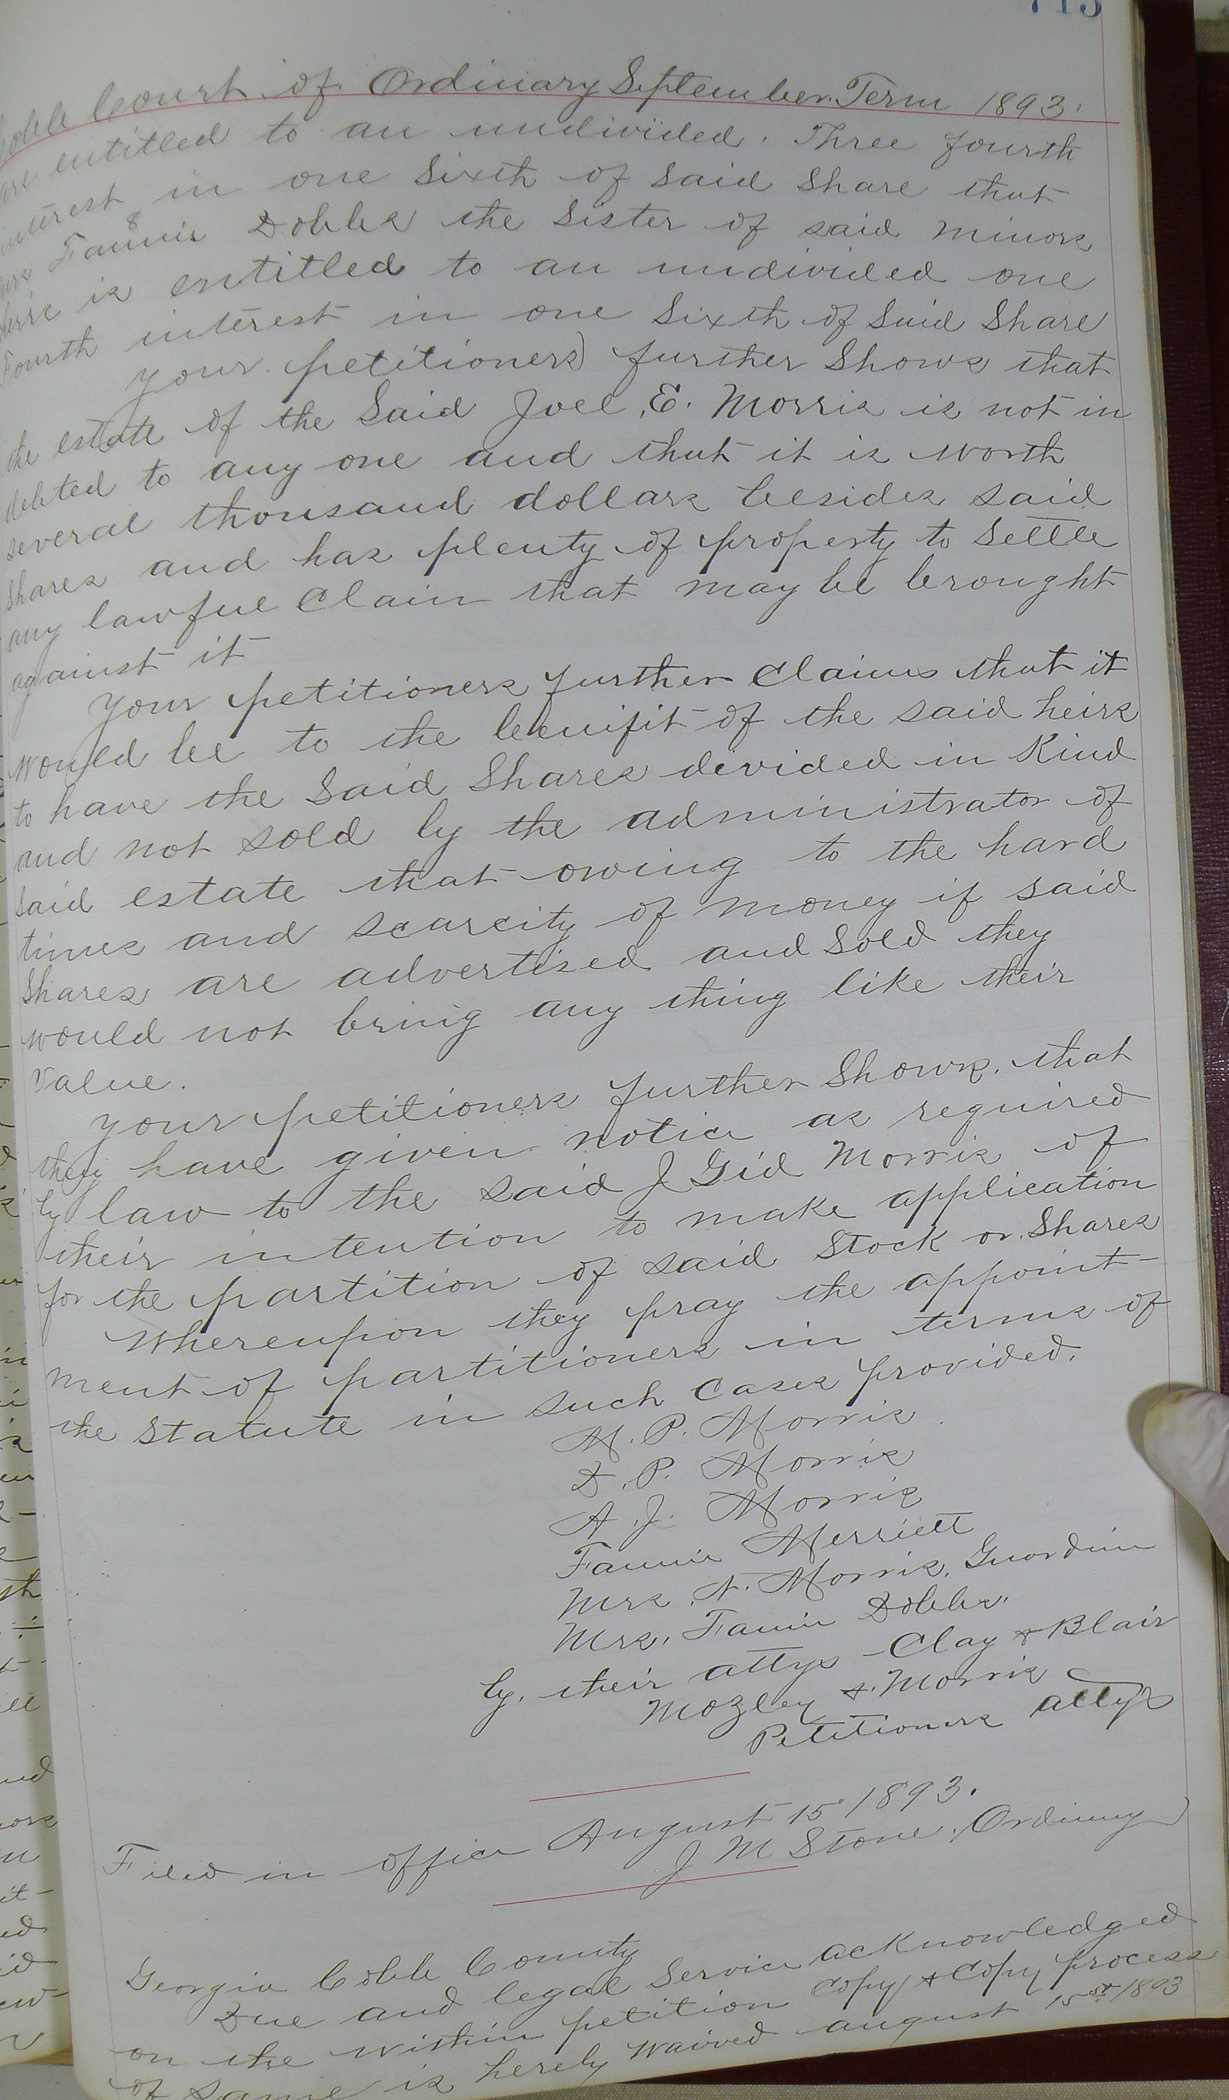 713
Cobb Court of Ordinary September Term 1893.
are entitled to an undivided. Three fourth
interest in one Sixth of Said Share that
Mrs Fannie Dobbs the Sister of said minors
heirs is entitled to an undivided one
Fourth interest in one Sixth of Said Share
Your petitioners further Shows that
the estate of the Said Joel, E. Morris is not in
debted to any one and that it is worth
several thousand dollars besides said
Shares and has plenty of property to Settle
any lawful Claim that may be brought
against it
Your petitioners further Claims that it
would be to the benifit of the said heirs
to have the Said Shares devided in Kind
and not sold by the administrator of
said estate that owing to the hard
times and scarcity of money if said
Shares are advertised and Sold they
would not bring any thing like their
Value.
Your petitioners further Shows. that
they have given notice as required
by law to the said J Gid Morris of
their intention to make application
for the partition of said Stock or Shares
Whereupon they pray the appoint-
ment of partitioners in terms of
the Statute in such Cases provided.
M. P. Morris
D. P. Morris
A. J. Morris
Fannie Merriett
Mrs. N. Morris, Guordian
Mrs. Fannie Dobbs.
by. their attys Clay & Blair
Mozley & Morris
Petitioners attys
Filed in office August 15 1893.
J M Stone, Ordinary
Georgia Cobb County
Due and legal Service acknowledged
on the within petition Copy & Copy process
of same is hereby Waived august 15st 1893